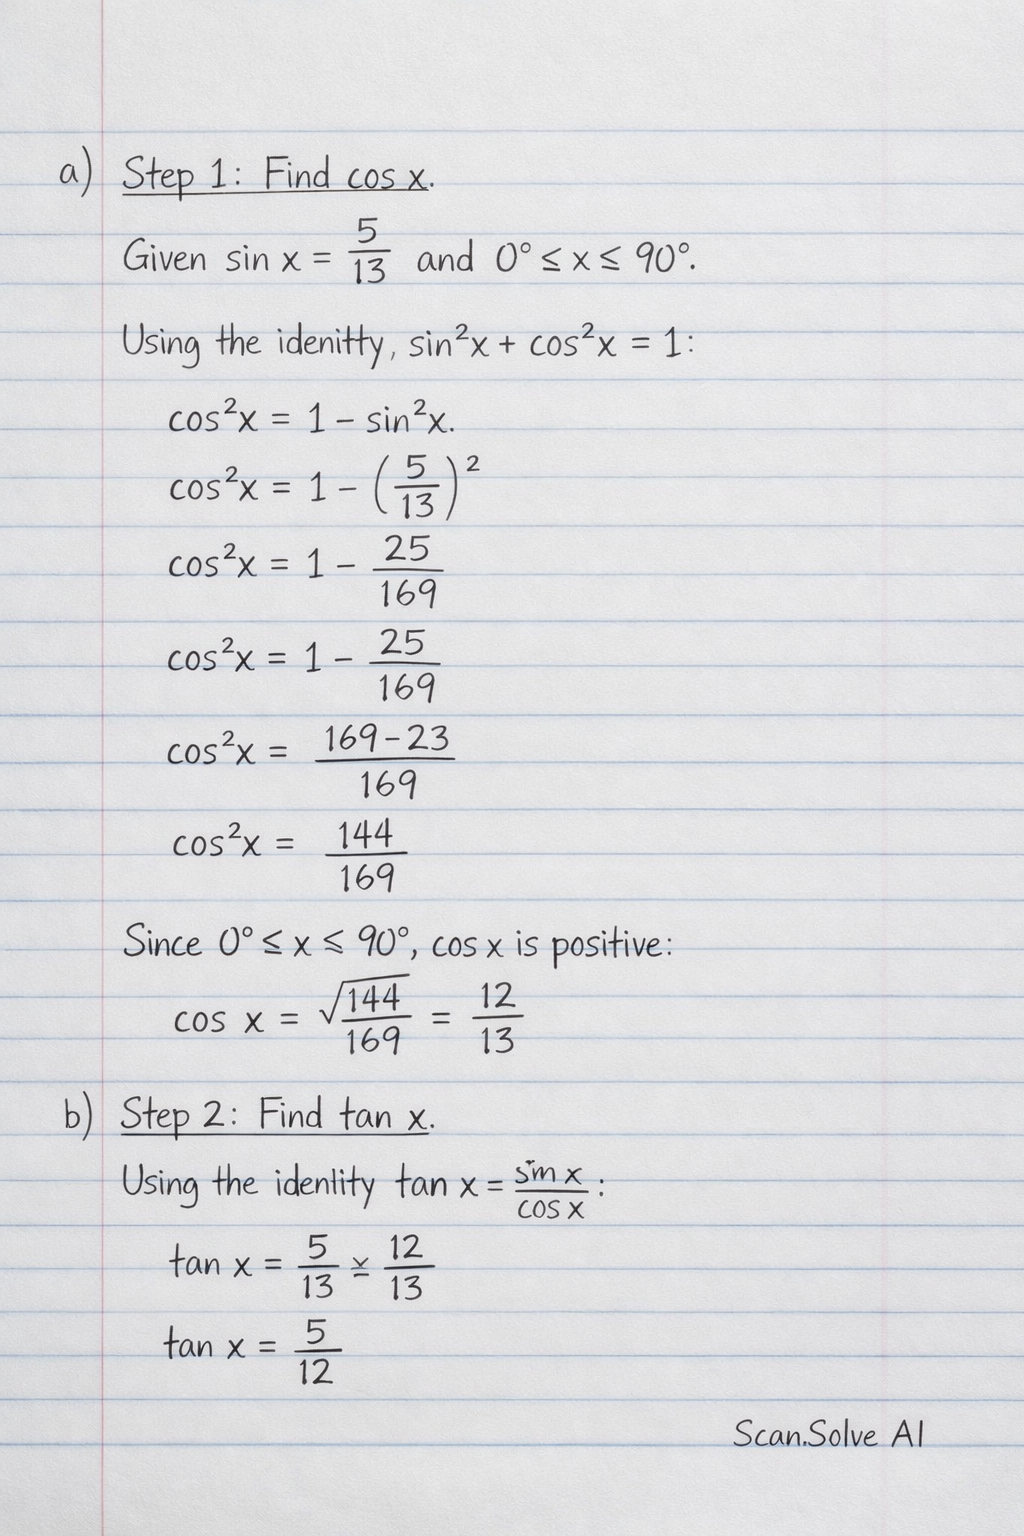 a) Step 1: Find cos x.
Given sin x = 5/13 and 0° ≤ x ≤ 90°.
Using the idenitty, sin²x + cos²x = 1:
cos²x = 1 − sin²x.
cos²x = 1 − (5/13)²
cos²x = 1 − 25/169
cos²x = 1 − 25/169
cos²x = 169−23/169
cos²x = 144/169
Since 0° ≤ x ≤ 90°, cos x is positive:
cos x = √144/169 = 12/13
b) Step 2: Find tan x.
Using the identity tan x = sin x/cos x :
tan x = 5/13 × 12/13
tan x = 5/12
Scan.Solve AI